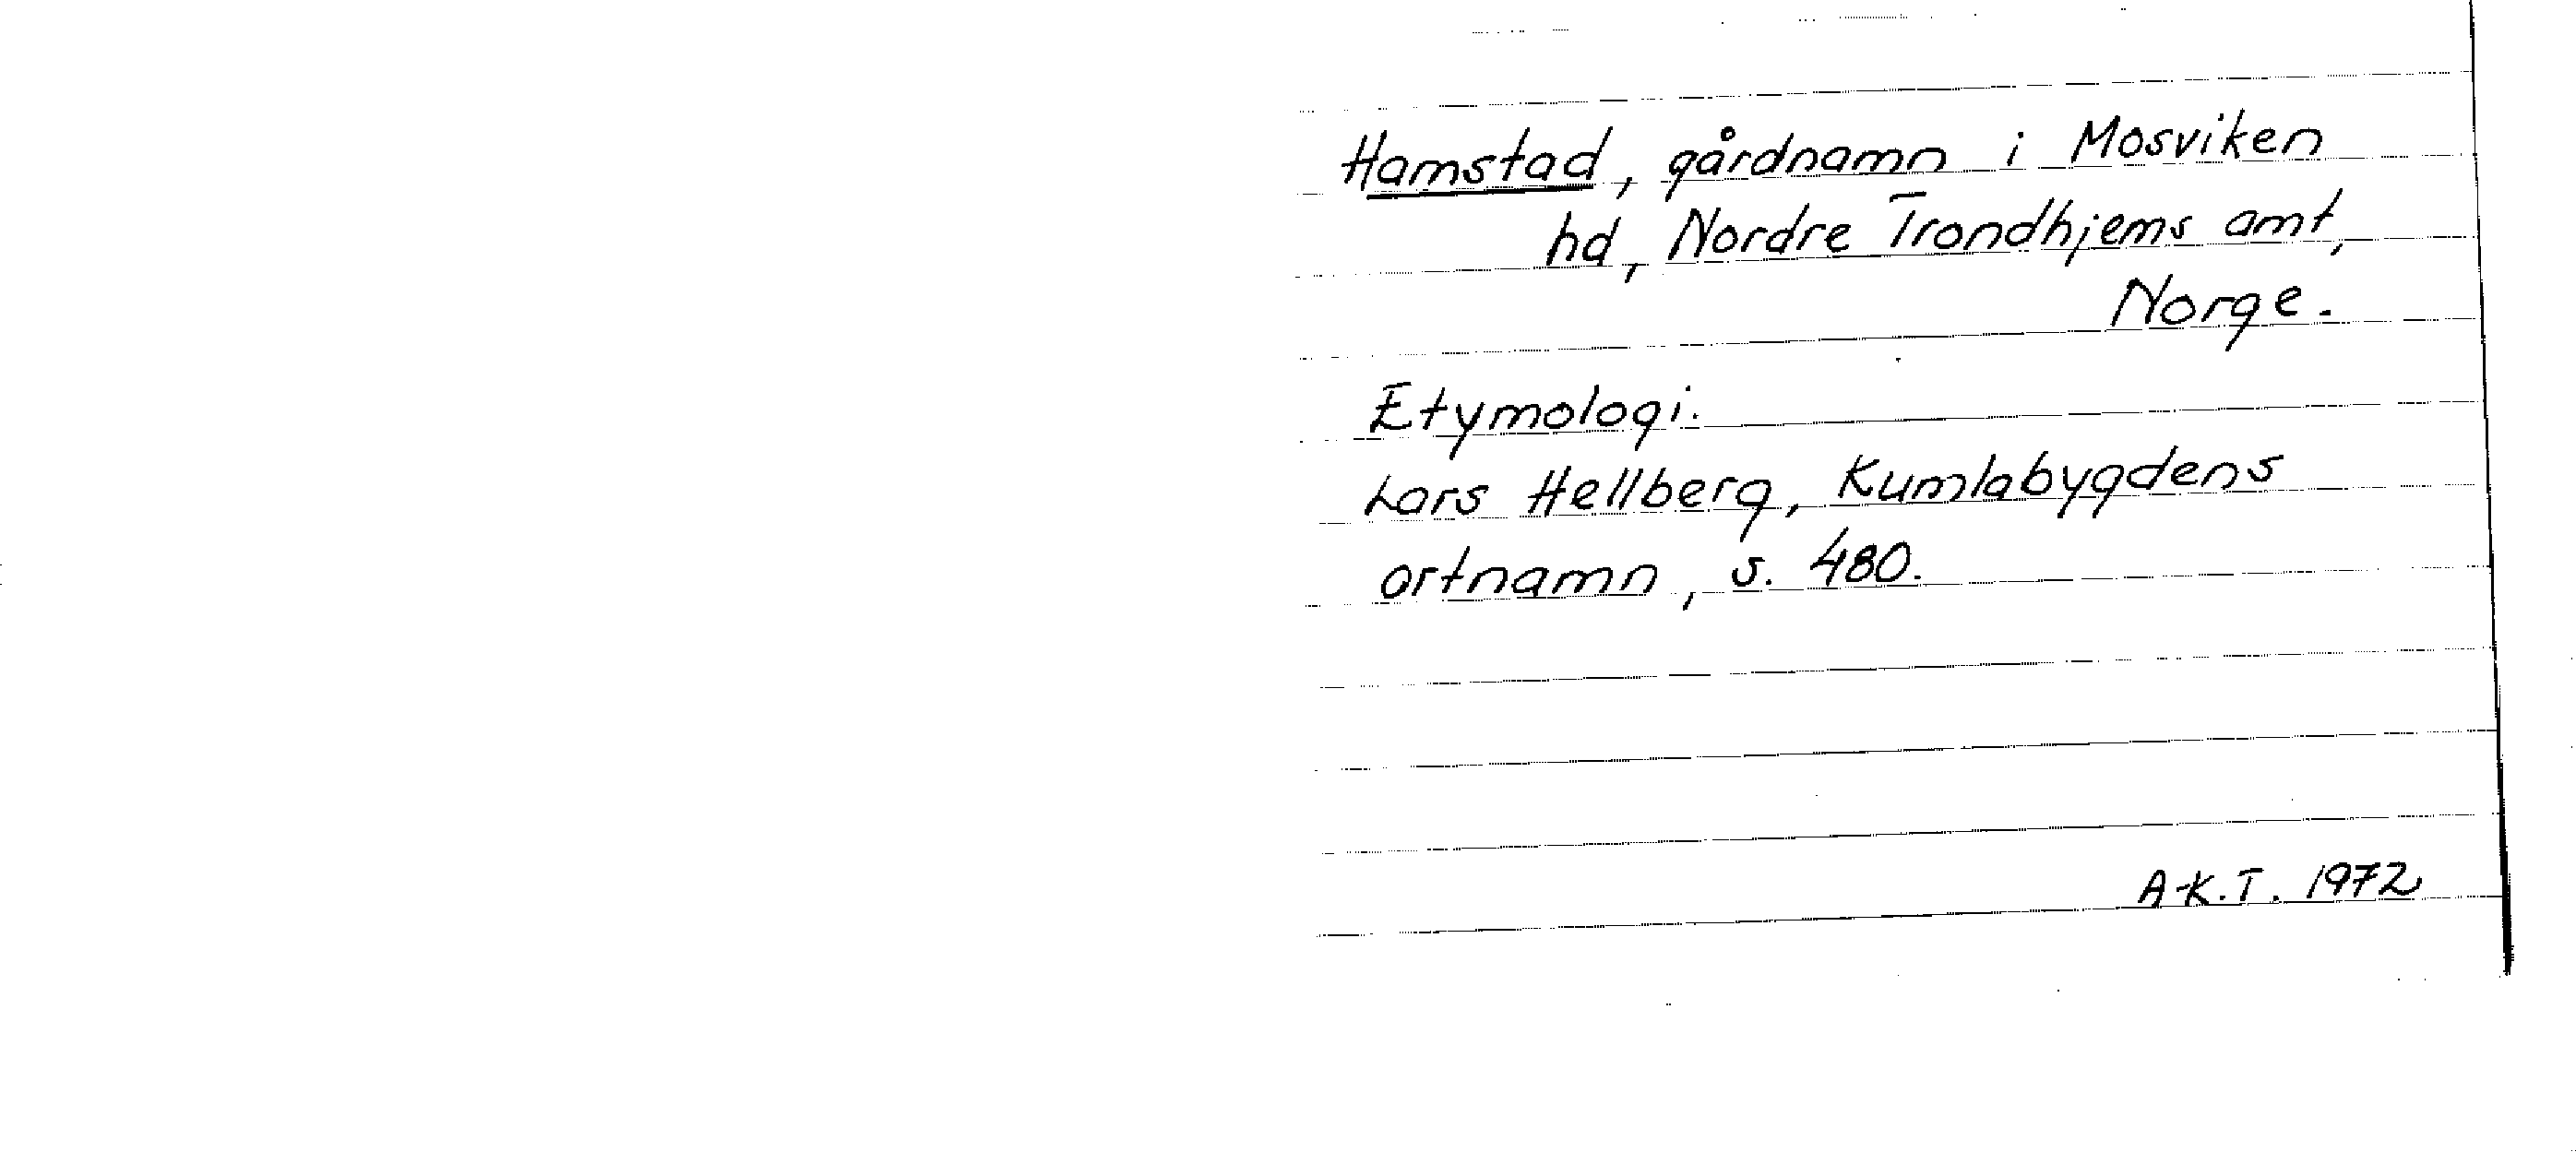 Hamstad, gårdnamn i Mosviken
hd, Nordre Trondhjems amt,
Norge.
Etymologi.
Lars Hellberg, Kumlabygdens
ortnamn, s. 480.
A-K.T. 1972